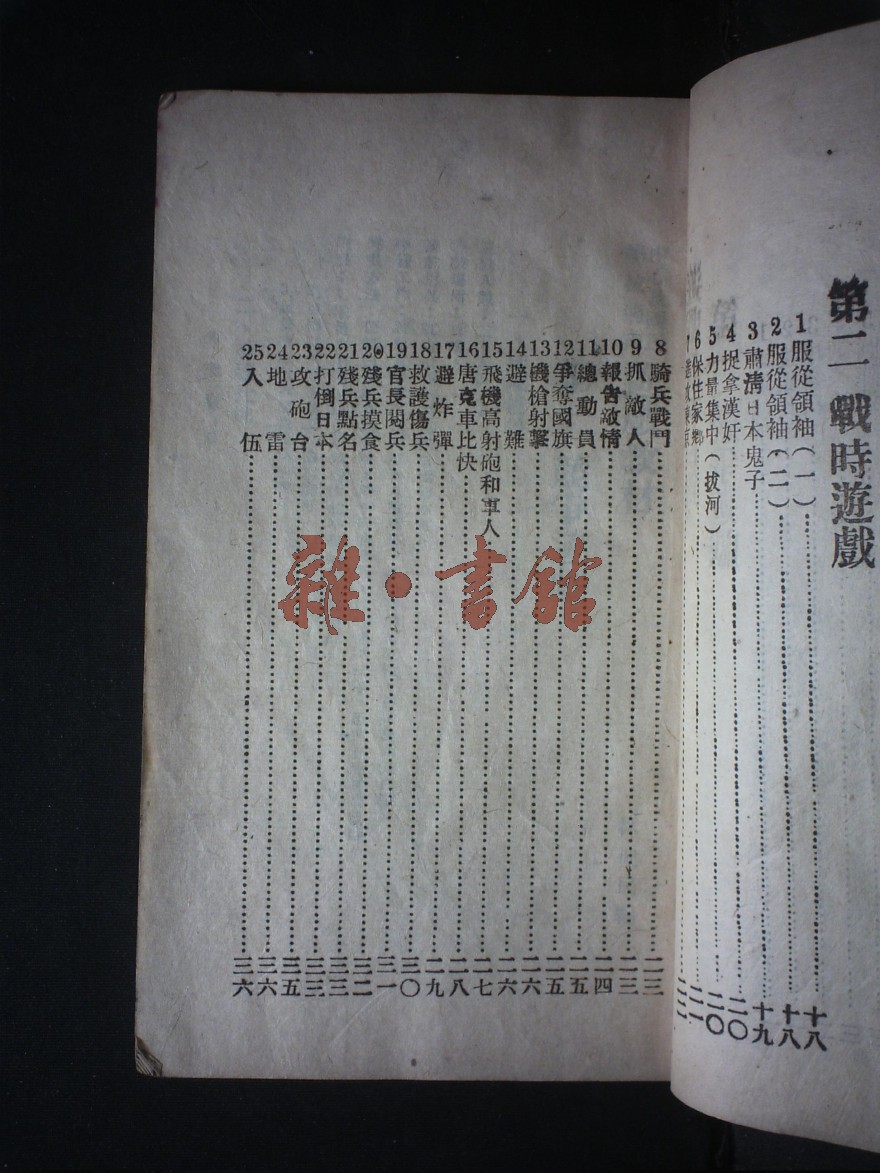 第二 戰時遊戲
1 服從領袖(一)……十八
2 服從領袖(二)……十八
3 肅清日本鬼子……十九
4 捉拿漢奸……二〇
5 力量集中(拔河)……二〇
6 保住家鄉……二一
8 騎兵戰鬥……二三
9 抓敵人……二三
10 報告敵情……二四
11 總動員……二五
12 爭奪國旗……二五
13 機槍射擊……二六
14 避難……二六
15 飛機高射砲和軍人……二七
16 唐克車比快……二八
17 避炸彈……二九
18 救護傷兵……三〇
19 官長閱兵……三一
20 殘兵摸食……三二
21 殘兵點名……三三
22 打倒日本……三三
23 攻砲台……三五
24 地雷……三六
25 入伍……三六
雜·書館